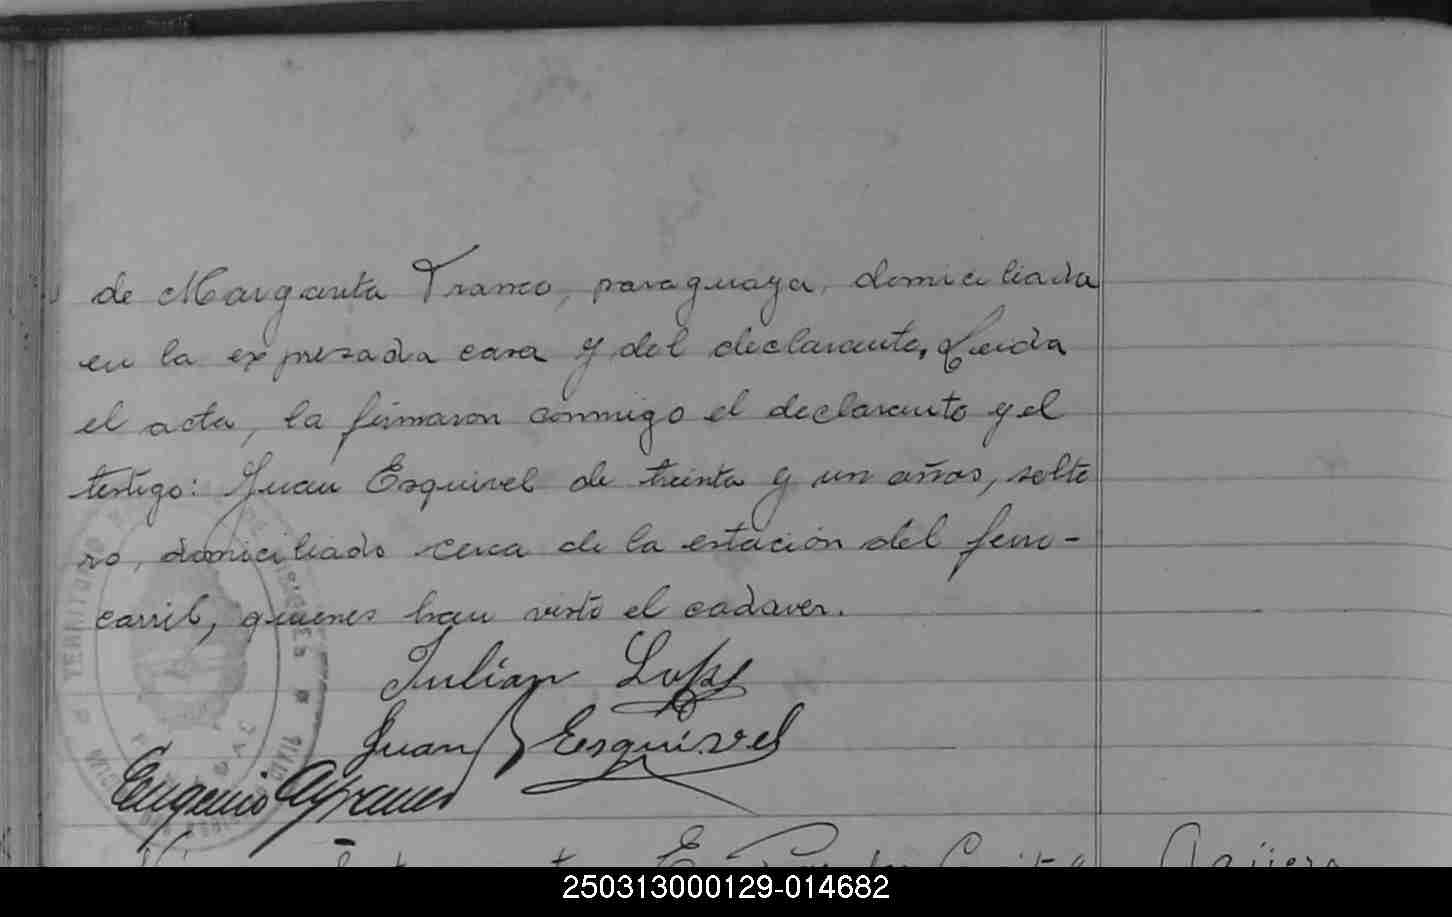 de Margarita Franco, paraguaya, domiciliada
en la expresada casa y del declarante, Leida
el acta, la firmaron conmigo el declarante y el
testigo: Juan Esquivel de treinta y un años, solte
ro, domiciliado cerca de la estación del ferro-
carril, quienes han visto el cadaver.
Julian
Juan Esquivel
Eugenio
TERRITORIO
250313000129-014682